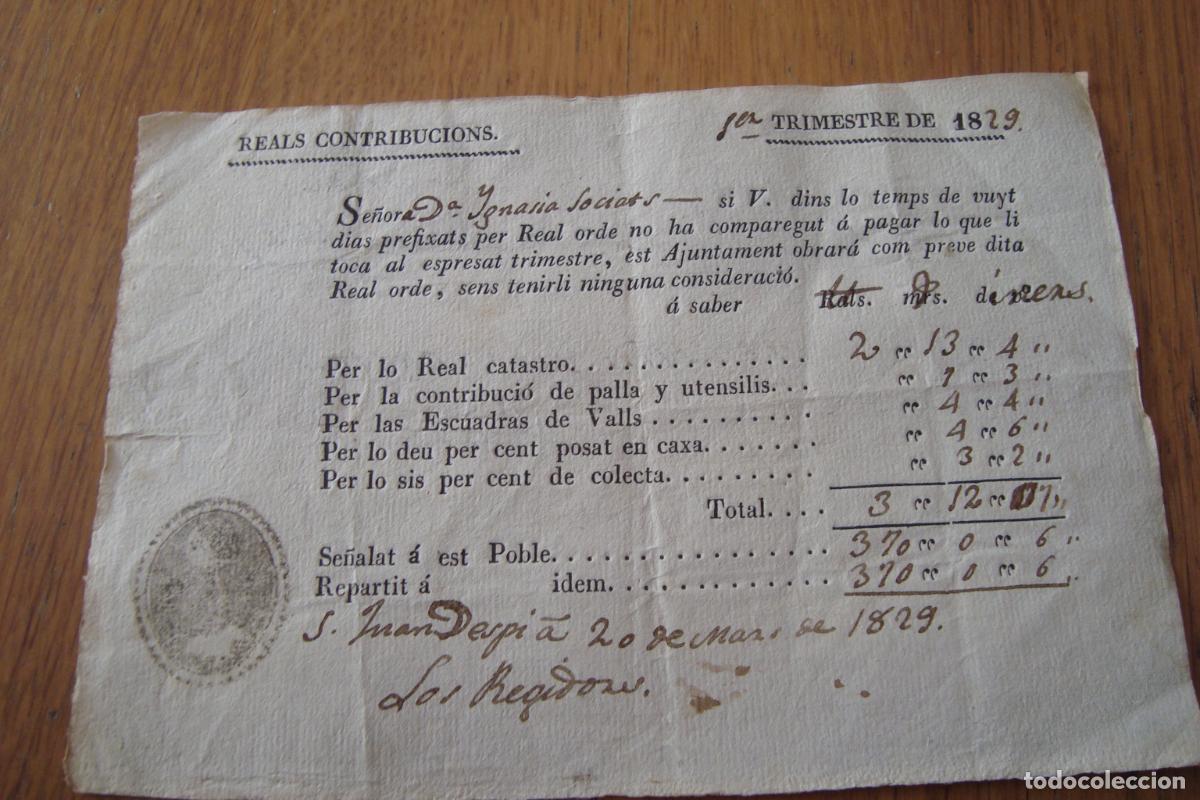 REALS CONTRIBUCIONS.
1er TRIMESTRE DE 1829.
Señora Da. Ygnasia Sociats — si V. dins lo temps de vuyt
dias prefixats per Real orde no ha comparegut á pagar lo que li
toca al espresat trimestre, est Ajuntament obrará com preve dita
Real orde, sens tenirli ninguna consideració.
á saber Rals. mrs. dinrens.
Per lo Real catastro. . . . . . . . . . . . . 2 " 13 " 4 "
Per la contribució de palla y utensilis. . . " 7 " 3 "
Per las Escuadras de Valls . . . . . . . . . . " 4 " 4 "
Per lo deu per cent posat en caxa. . . . . . . " 4 " 6 "
Per lo sis per cent de colecta. . . . . . . . . " 3 " 2 "
Total. . . . 3 " 12 " 7 "
Señalat á est Poble. . . . . . . . . . . . . . . . . 370 " 0 " 6 "
Repartit á idem. . . . . . . . . . . . . 370 " 0 " 6 "
S. Juan Despi á 20 de Mars de 1829.
Los Regidors.
todocoleccion